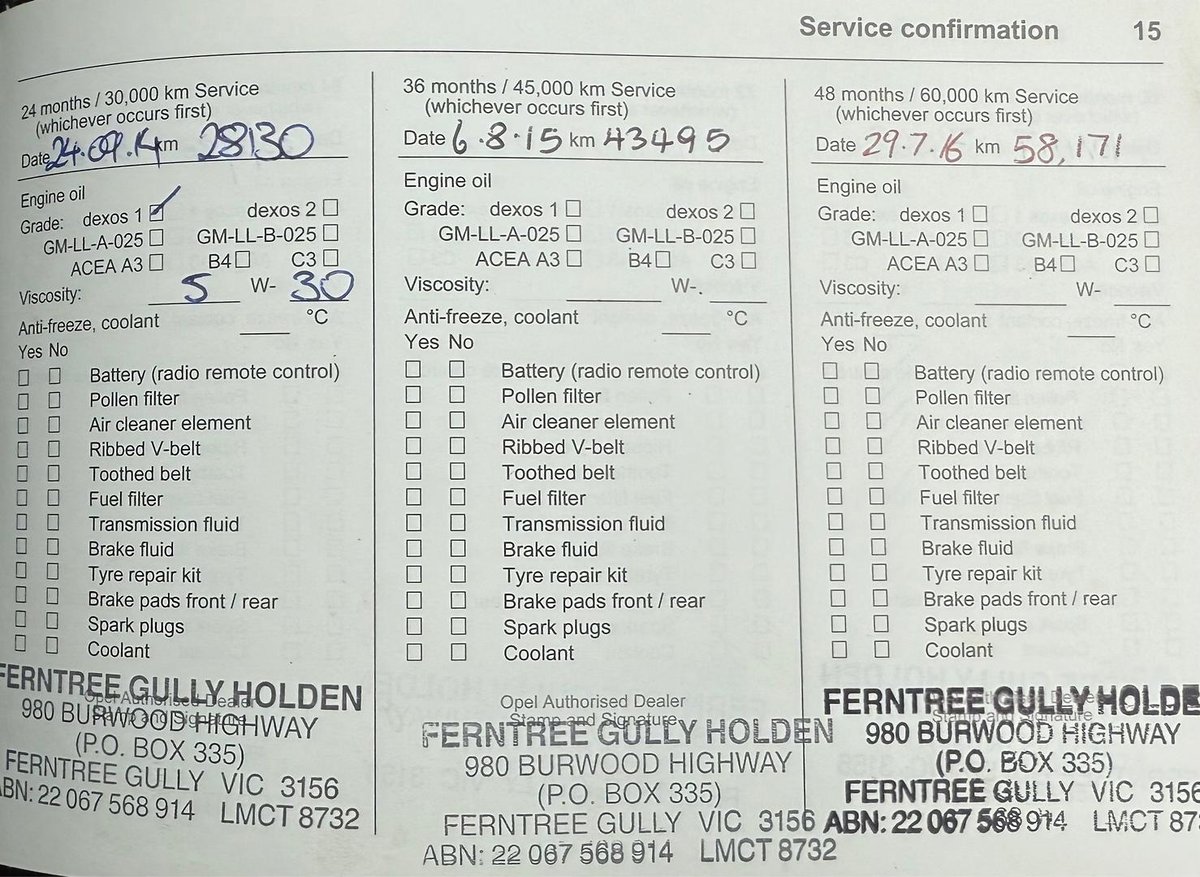 Service confirmation 15
24 months / 30,000 km Service
(whichever occurs first)
Date 24.09.14 km 28130
Engine oil
Grade: dexos 1 dexos 2
GM-LL-A-025 GM-LL-B-025
ACEA A3 B4 C3
Viscosity: 5 W- 30
Anti-freeze, coolant °C
Yes No
Battery (radio remote control)
Pollen filter
Air cleaner element
Ribbed V-belt
Toothed belt
Fuel filter
Transmission fluid
Brake fluid
Tyre repair kit
Brake pads front / rear
Spark plugs
Coolant
Opel Authorised Dealer
Stamp and Signature
FERNTREE GULLY HOLDEN
980 BURWOOD HIGHWAY
(P.O. BOX 335)
FERNTREE GULLY VIC 3156
ABN: 22 067 568 914 LMCT 8732
36 months / 45,000 km Service
(whichever occurs first)
Date 6.8.15 km 43495
Engine oil
Grade: dexos 1 dexos 2
GM-LL-A-025 GM-LL-B-025
ACEA A3 B4 C3
Viscosity: W-
Anti-freeze, coolant °C
Yes No
Battery (radio remote control)
Pollen filter
Air cleaner element
Ribbed V-belt
Toothed belt
Fuel filter
Transmission fluid
Brake fluid
Tyre repair kit
Brake pads front / rear
Spark plugs
Coolant
Opel Authorised Dealer
Stamp and Signature
FERNTREE GULLY HOLDEN
980 BURWOOD HIGHWAY
(P.O. BOX 335)
FERNTREE GULLY VIC 3156
ABN: 22 067 568 914 LMCT 8732
48 months / 60,000 km Service
(whichever occurs first)
Date 29.7.16 km 58,171
Engine oil
Grade: dexos 1 dexos 2
GM-LL-A-025 GM-LL-B-025
ACEA A3 B4 C3
Viscosity: W-
Anti-freeze, coolant °C
Yes No
Battery (radio remote control)
Pollen filter
Air cleaner element
Ribbed V-belt
Toothed belt
Fuel filter
Transmission fluid
Brake fluid
Tyre repair kit
Brake pads front / rear
Spark plugs
Coolant
Stamp and Signature
FERNTREE GULLY HOLDE
980 BURWOOD HIGHWAY
(P.O. BOX 335)
FERNTREE GULLY VIC 3156
ABN: 22 067 568 914 LMCT 87